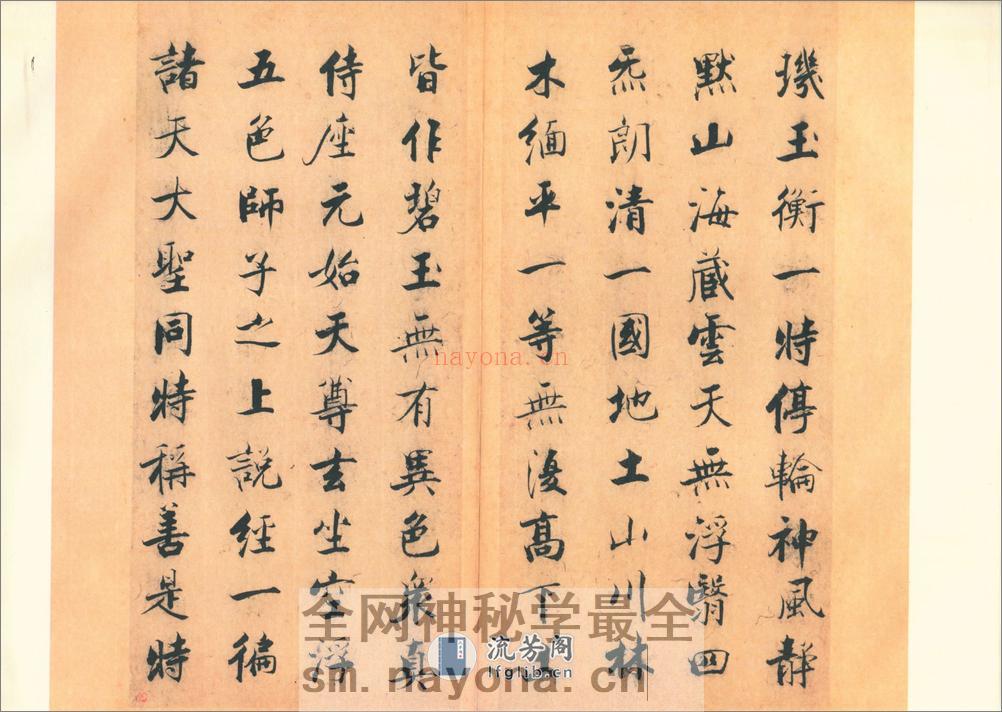 璣玉衡一時停輪神風靜
默山海蔵雲天無浮翳四
炁朗清一國地土山川林
木緬平一等無復髙下土
皆作碧玉無有異色衆真
侍座元始天尊玄坐空浮
五色師子之上説經一徧
諸天大聖同時稱善是時
nayona.cn
全网神秘学最全
流芳阁
lfglib.cn
sm.nayona.cn